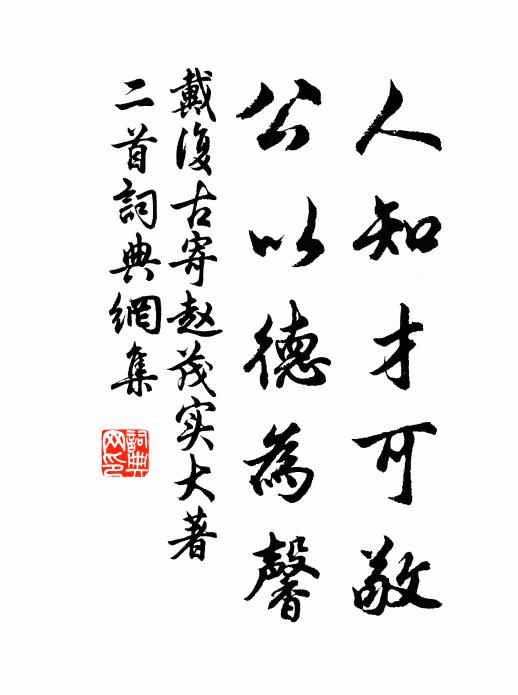 人知才可敬
公以德為馨
戴復古寄赵茂实大著
二首詞典網集
詞典
网印